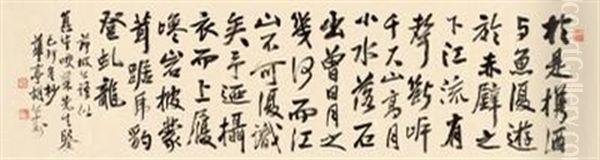 於是携酒
与魚復遊
於赤壁之
下江流有
聲斷岸
千尺山高月
小水落石
出曾日月之
幾何而江
山不可復識
矣予迺攝
衣而上履
巉岩披蒙
茸踞虎豹
登虬龍
先生鑒